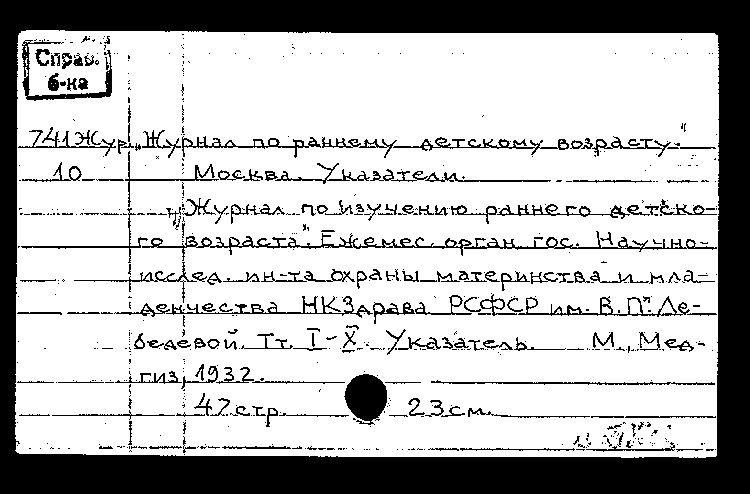 Справ.
б-ка
741Жур „Журнал по раннему детскому возрасту."
10 Москва. Указатели.
„Журнал по изучению раннего детско-
го возраста". Ежемес. орган гос. Научно-
исслед. ин-та охраны материнства и мла-
денчества НКЗдрава РСФСР им. В.П. Ле-
бедевой. Тт. I-X. Указатель. М., Мед-
гиз, 1932.
47стр. 23см.